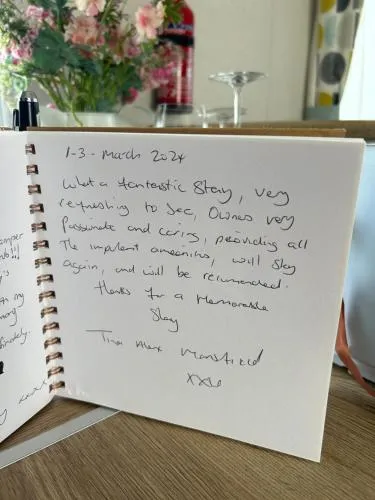 1-3 - March 2024
What a fantastic Stay, very
refreshing to see, Owners very
passionate and caring, providing all
The important amenities, will stay
again, and will be recommended.
thanks for a Memorable
Stay
Tina Alex Mansfield
xxx
amper
ub!!!
's
th my
mory
nately.
y xxxx